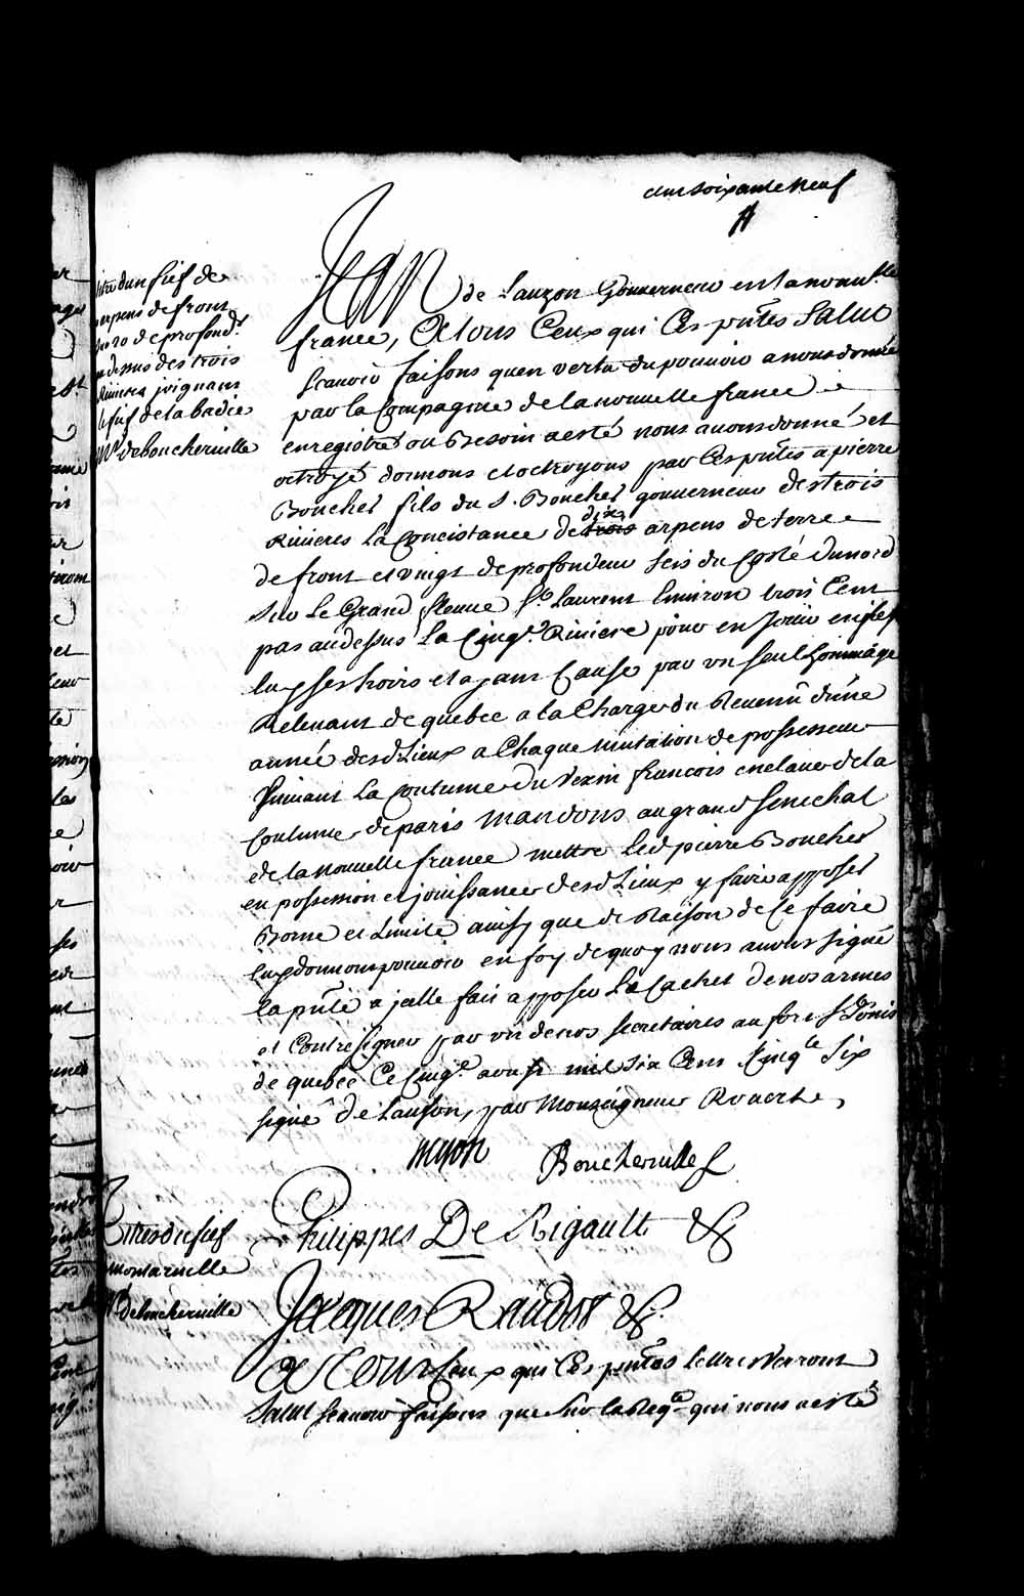 cent soixante neuf
titre dun fief de
arpens de front
sur 20 de profondr
au dessus des trois
Rivieres joignant
le fief de la badie
Mr de boucherville
Jean de Lauzon Gouverneur en la nouvelle
france, A tous Ceux qui Ces pntes Salut
scauoir faisons quen vertu du pouuoir a nous donné
par la Compagnie de la nouuelle france
enregistré ou Besoin a esté nous auons donné et
octroyé donnons et octroyons par Ces pntes a pierre
Boucher fils du S. Boucher gouuerneur des trois
Riuieres La Concistance de trois dix arpens de terre
de front et vingt de profondeur seis du Costé du nord
sur Le Grand fleuue St Laurent Enuiron trois Cent
pas au dessus La Cinqe Riuiere pour en Jouir en fief
luy ses hoirs et ayant Cause par vn seul hommage
Releuant de quebec a la Charge du Reuenu dune
année desd Lieux a Chaque mutation de possesseur
suiuant La Coutume du Vexin francois enclaué de la
Coutume de paris Mandons au grand senechal
de la nouuelle france mettre led pierre Boucher
en possession et jouissance desd Lieux y faire apposer
Borne et Limite ainsy que de Raison de Ce faire
luy donnons pouuoir en foy de quoy nous auons signé
la pnte a jcelle fait apposer Le Cachet de nos armes
et Contresigner par vn de nos secretaires au fort St Louis
de quebec Ce Cinqe aoust mil six Cent Cinqte six
signé De Lauson, par Monseigneur Rouer &,
Boucherville
Titres du fief
montarville
Mr de boucherville
Philippes De Rigault &c
Jacques Raudot &c
A Tous Ceux qui Ces pntes Lettres Verront
Salut scauoir faisons que sur la Reqte qui nous a esté